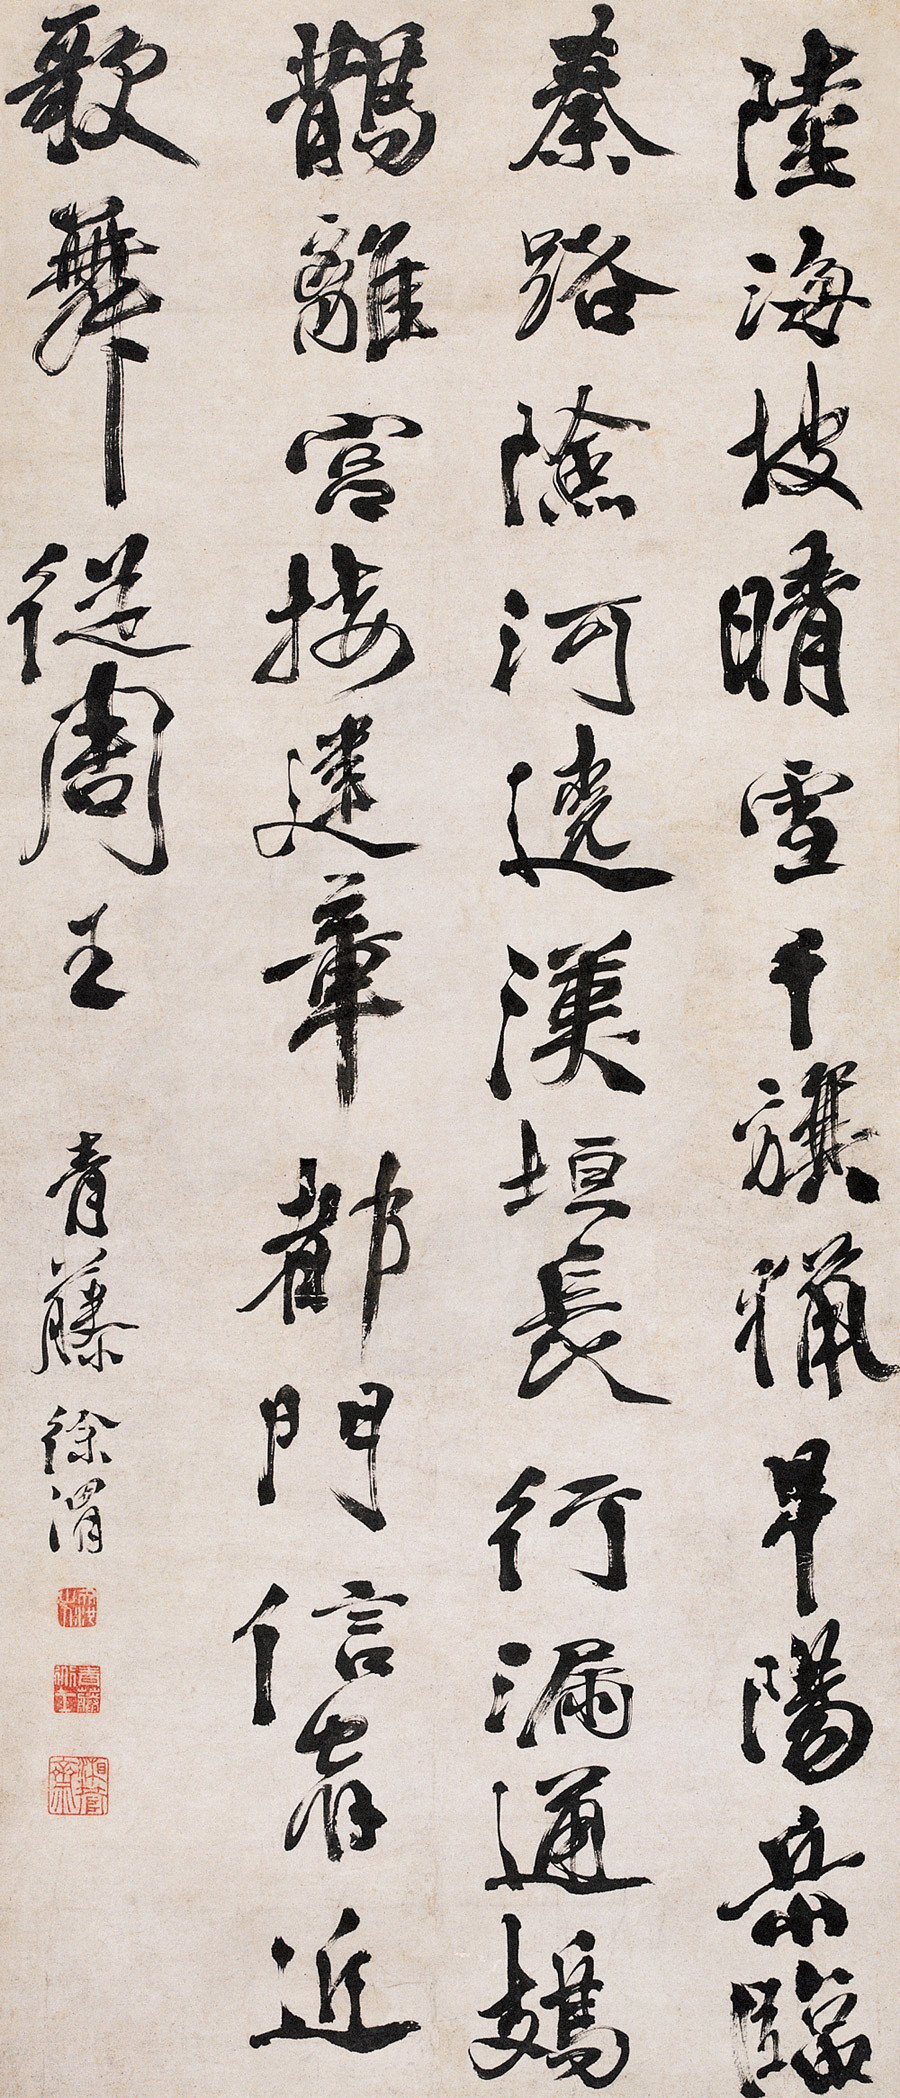 陸海披晴雪千旗獵早陽岳臨
秦路險河遶漢垣長行漏通鳷
鵲離宮接建章都門信近
歌舞從周王
青藤徐渭
湘管齋